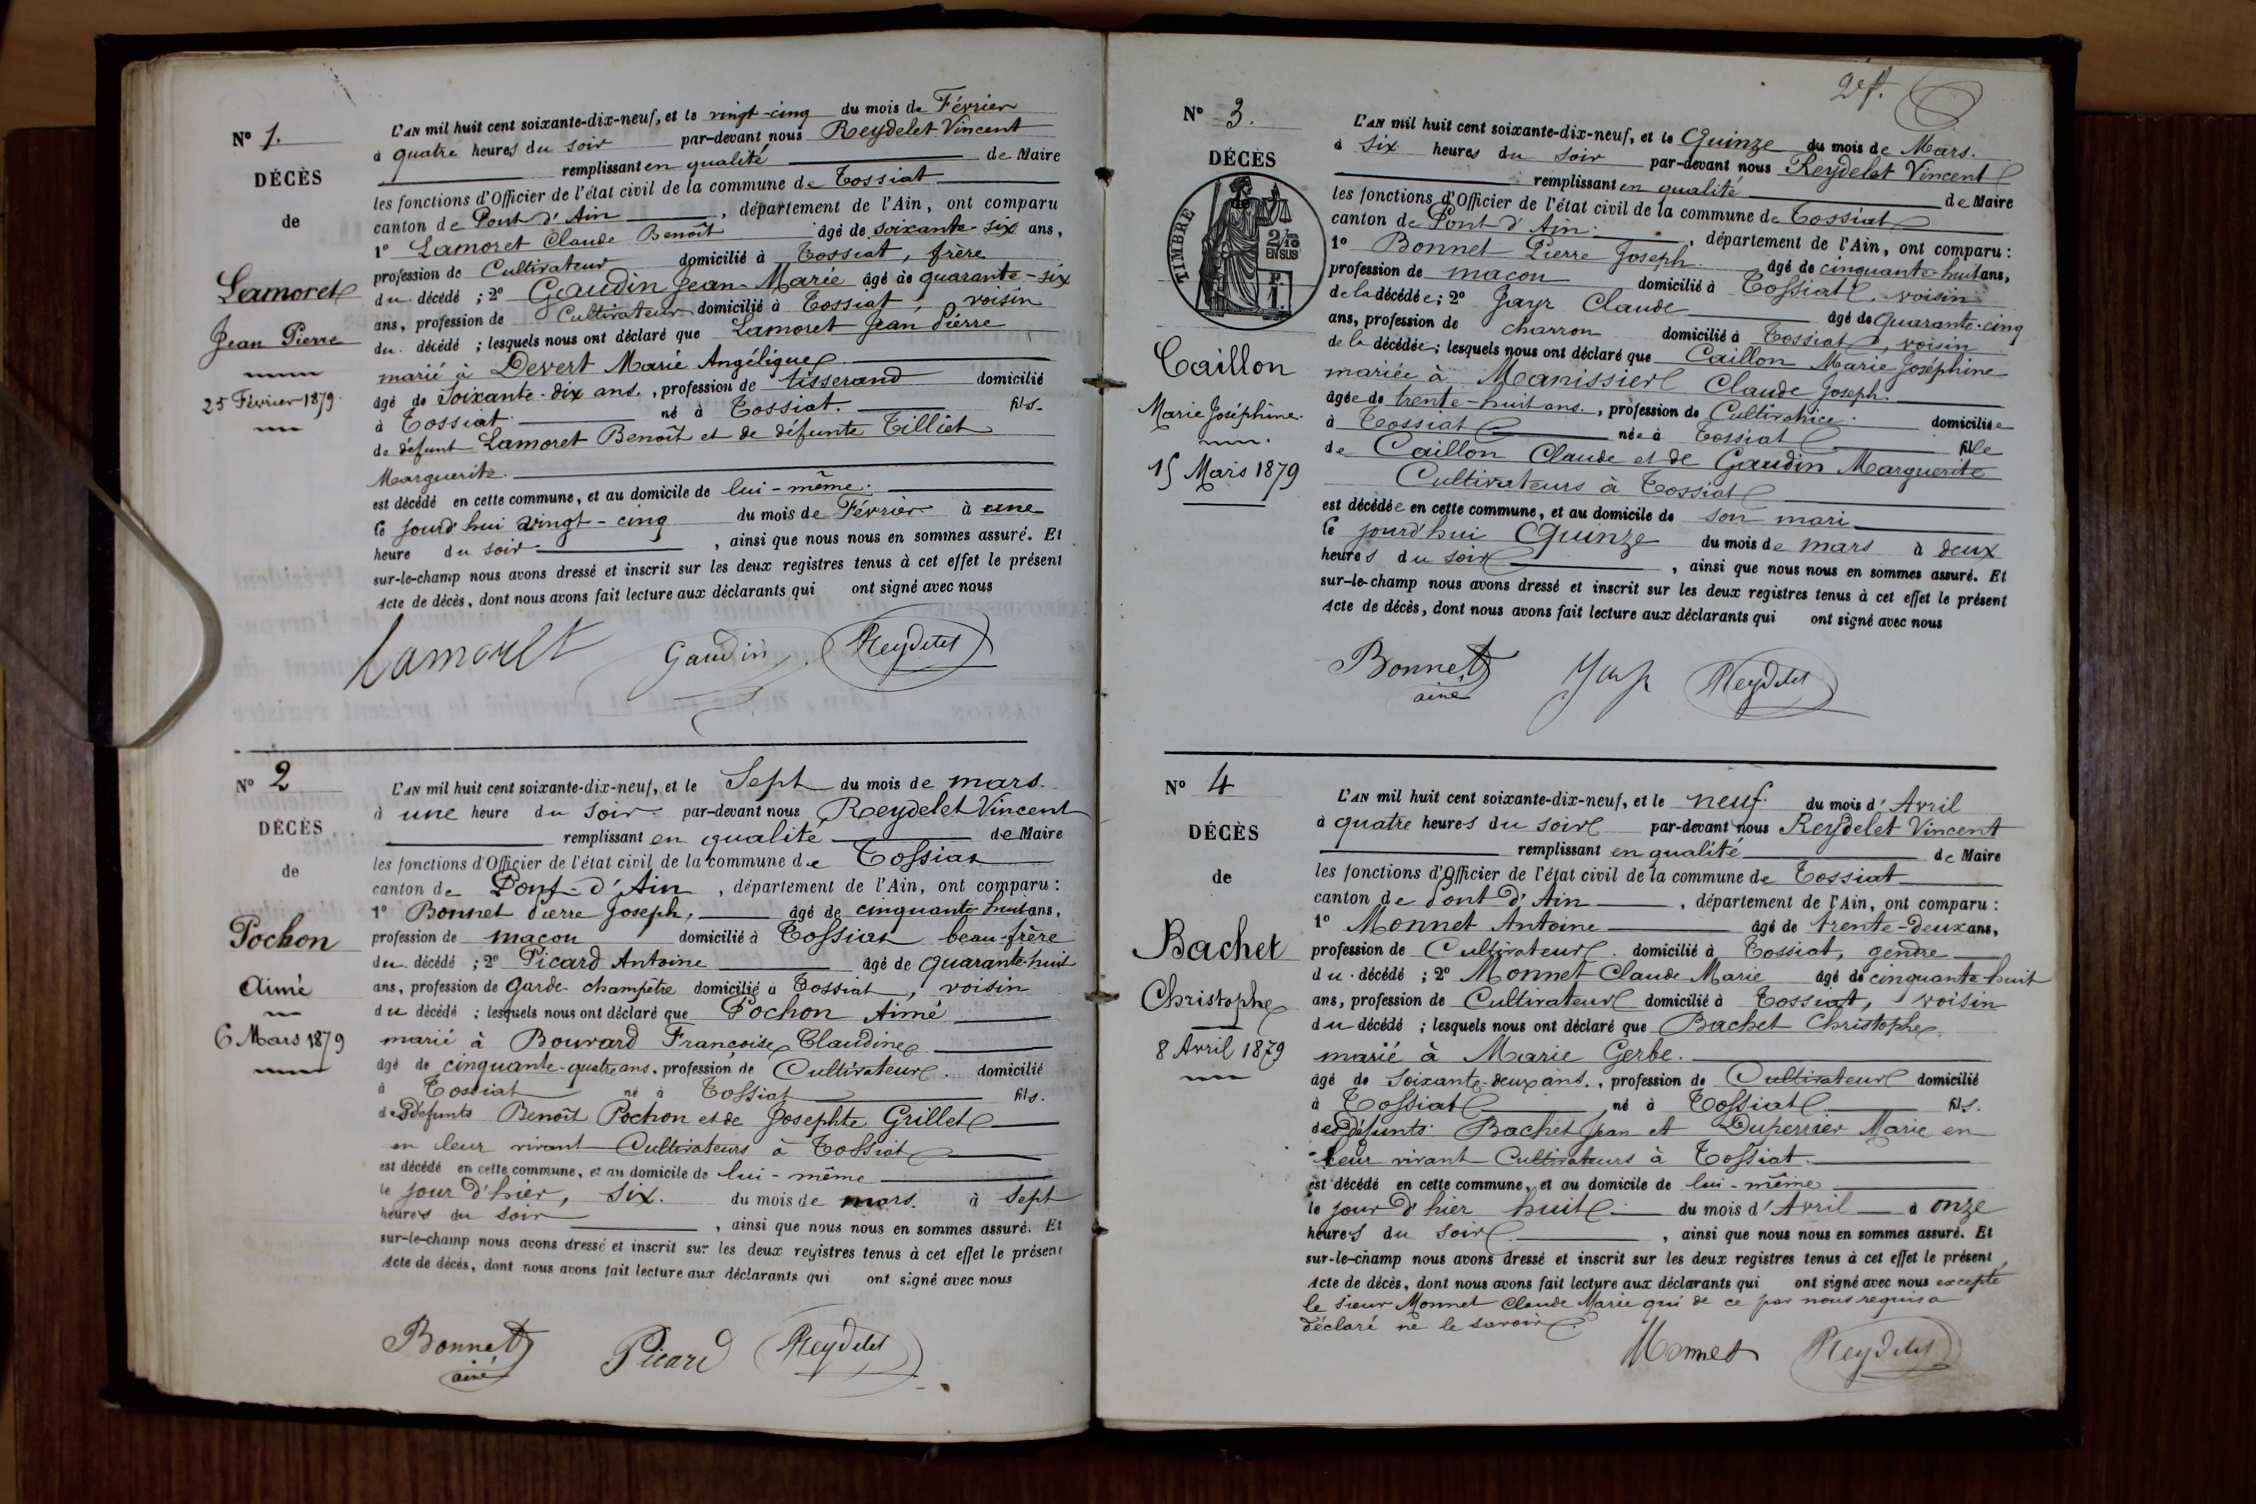 Nº 1.
DÉCÈS
de
Lamoret
Jean Pierre
25 Février 1879.
L'AN mil huit cent soixante-dix-neuf, et le vingt-cinq du mois de Février
à quatre heures du soir par-devant nous Reydelet Vincent
remplissant en qualité de Maire
les fonctions d'Officier de l'état civil de la commune de Tossiat
canton de Pont d'Ain, département de l'Ain, ont comparu
1º Lamoret Claude Benoît âgé de soixante-six ans,
profession de Cultivateur domicilié à Tossiat, frère
du décédé ; 2º Gaudin Jean-Marie âgé de quarante-six
ans, profession de Cultivateur domicilié à Tossiat, voisin
du décédé ; lesquels nous ont déclaré que Lamoret Jean Pierre
marié à Devert Marie Angélique
âgé de Soixante-dix ans, profession de tisserand domicilié
à Tossiat né à Tossiat. fils
de défunt Lamoret Benoît et de défunte Tilliet
Marguerite.
est décédé en cette commune, et au domicile de lui-même.
ce jourd'hui vingt-cinq du mois de Février à une
heure du soir, ainsi que nous nous en sommes assuré. Et
sur-le-champ nous avons dressé et inscrit sur les deux registres tenus à cet effet le présent
Acte de décès, dont nous avons fait lecture aux déclarants qui ont signé avec nous
Lamoret Gaudin Reydelet
Nº 2
DÉCÈS
de
Pochon
Aimé
6 Mars 1879
L'AN mil huit cent soixante-dix-neuf, et le Sept du mois de mars.
à une heure du soir par-devant nous Reydelet Vincent
remplissant en qualité de Maire
les fonctions d'Officier de l'état civil de la commune de Tossiat
canton de Pont-d'Ain, département de l'Ain, ont comparu :
1º Bonnet Pierre Joseph, âgé de cinquante-huit ans,
profession de maçon domicilié à Tossiat beau-frère
du décédé ; 2º Picard Antoine âgé de quarante-huit
ans, profession de garde-champêtre domicilié à Tossiat, voisin
du décédé ; lesquels nous ont déclaré que Pochon Aimé
marié à Bouvard Françoise Claudine
âgé de cinquante-quatre ans, profession de Cultivateur. domicilié
à Tossiat né à Tossiat fils.
des défunts Benoît Pochon et de Josephte Grillet
en leur vivant Cultivateurs à Tossiat
est décédé en cette commune, et au domicile de lui-même
le jour d'hier, six. du mois de mars. à sept
heures du soir, ainsi que nous nous en sommes assuré. Et
sur-le-champ nous avons dressé et inscrit sur les deux registres tenus à cet effet le présent
Acte de décès, dont nous avons fait lecture aux déclarants qui ont signé avec nous
Bonnet Picard Reydelet
ainé
Nº 3.
DÉCÈS
de
TIMBRE
2/10
EN SUS
Caillon
Marie Joséphine.
15 Mars 1879
L'AN mil huit cent soixante-dix-neuf, et le Quinze du mois de Mars.
à six heures du soir par-devant nous Reydelet Vincent
remplissant en qualité de Maire
les fonctions d'Officier de l'état civil de la commune de Tossiat
canton de Pont d'Ain, département de l'Ain, ont comparu :
1º Bonnet Pierre Joseph. âgé de cinquante-huit ans,
profession de maçon domicilié à Tossiat, voisin
de la décédée ; 2º Jayr Claude âgé de Quarante-cinq
ans, profession de charron domicilié à Tossiat, voisin
de la décédée ; lesquels nous ont déclaré que Caillon Marie Joséphine
mariée à Manissier Claude Joseph.
âgée de trente-huit ans, profession de Cultivatrice. domiciliée
à Tossiat née à Tossiat fille
de Caillon Claude et de Gaudin Marguerite
Cultivateurs à Tossiat
est décédée en cette commune, et au domicile de son mari
ce jourd'hui Quinze du mois de mars à deux
heures du soir, ainsi que nous nous en sommes assuré. Et
sur-le-champ nous avons dressé et inscrit sur les deux registres tenus à cet effet le présent
Acte de décès, dont nous avons fait lecture aux déclarants qui ont signé avec nous
Bonnet Jayr Reydelet
ainé
Nº 4
DÉCÈS
de
Bachet
Christophe
8 Avril 1879
L'AN mil huit cent soixante-dix-neuf, et le neuf. du mois d'Avril
à quatre heures du soir par-devant nous Reydelet Vincent
remplissant en qualité de Maire
les fonctions d'Officier de l'état civil de la commune de Tossiat
canton de Pont d'Ain, département de l'Ain, ont comparu :
1º Monnet Antoine âgé de trente-deux ans,
profession de Cultivateur. domicilié à Tossiat, gendre
du décédé ; 2º Monnet Claude Marie âgé de cinquante-huit
ans, profession de Cultivateur domicilié à Tossiat, voisin
du décédé ; lesquels nous ont déclaré que Bachet Christophe
marié à Marie Gerbe.
âgé de Soixante-deux ans, profession de Cultivateur domicilié
à Tossiat né à Tossiat fils.
des défunts Bachet Jean et Duperrier Marie en
leur vivant Cultivateurs à Tossiat.
est décédé en cette commune, et au domicile de lui-même
le jour d'hier huit du mois d'Avril à onze
heures du soir, ainsi que nous nous en sommes assuré. Et
sur-le-champ nous avons dressé et inscrit sur les deux registres tenus à cet effet le présent
Acte de décès, dont nous avons fait lecture aux déclarants qui ont signé avec nous excepté
le sieur Monnet Claude Marie qui de ce par nous requis a
déclaré ne le savoir
Monnet Reydelet